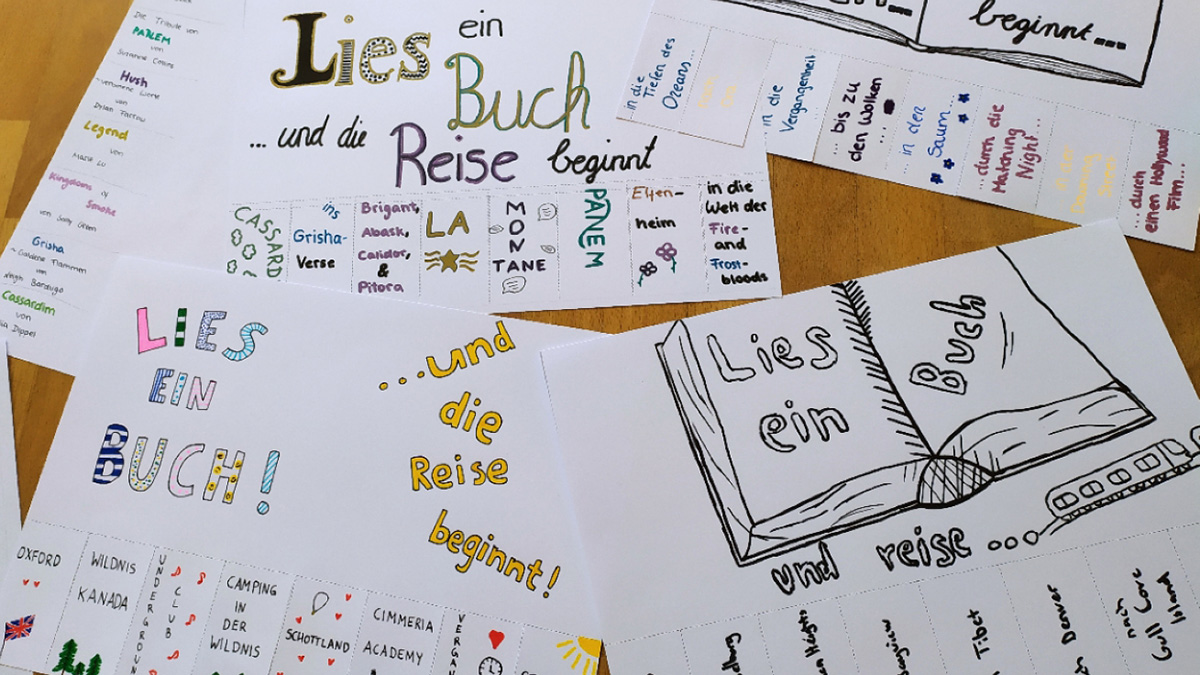 Die Tribute von
PANEM
von
Suzanne Collins
Hush
Verbotene Worte
von
Dylan Farrow
Legend
von
Marie Lu
Kingdoms of
Smoke
von Sally Green
Grisha
Goldene Flammen
von
Leigh Bardugo
Cassardim
von
Julia Dippel
Lies ein
Buch
... und die
Reise beginnt
CASSARD
ins
Grisha-
Verse
Brigant,
Abask,
Calidor,
&
Pitora
LA
MON
TANE
PANEM
Elfen-
heim
in die
Welt der
Fire-
and
Frost-
bloods
beginnt...
in die
Tiefen des
Ozeans...
in die
Vergangenheit
... bis zu
den Wolken
...
in den
Saum...
...durch die
Matching
Night...
...durch
einen Hollywood
Film...
LIES
EIN
BUCH!
...und
die
Reise
beginnt!
OXFORD
WILDNIS
KANADA
UNDERGROUND
CLUB
CAMPING
IN
DER
WILDNIS
SCHOTTLAND
CIMMERIA
ACADEMY
VERGAN
Lies
ein
Buch
und reise...
Tibet
Denver
nach
Gull Cove
Island